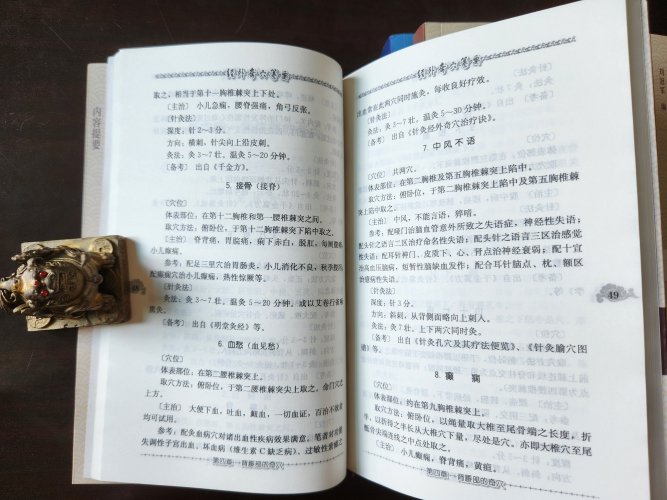 经外奇穴笺要
取之，相当于第十一胸椎棘突上下处。
〔主治〕 小儿急痫，腰脊强痛，角弓反张。
〔针灸法〕
深度：针2～3分。
方向：横刺，针尖向上沿皮刺。
灸法：灸3～7壮，温灸5～20分钟。
〔备考〕 出自《千金方》。
5. 接骨（接脊）
〔穴位〕
体表部位：在第十二胸椎和第一腰椎棘突之间。
取穴方法：俯卧位，于第十二胸椎棘突下陷中取之。
〔主治〕 脊背痛，胃脘痛，痢下赤白，脱肛，
小儿癫痫。
参考：配足三里穴治胃肠炎，小儿消化不良，
配癫痫穴治小儿癫痫，热性惊厥等。
〔针灸法〕
灸法：灸3～7壮，温灸5～20分钟，或以艾卷行雀啄
熏灸。
〔备考〕 出自《明堂灸经》等。
6. 血愁（血见愁）
〔穴位〕
体表部位：在第二腰椎棘突上。
取穴方法：俯卧位，于第二腰椎棘突尖上取之，命门穴之
上方。
〔主治〕 大便下血，吐血，衄血，一切血证，百治不效者
均可试用。
参考：配灸血病穴对诸出血性疾病效果满意。笔者对功能
失调性子宫出血、坏血病（维生素C缺乏病）、过敏性紫癜之
第四章 背腰部的奇穴
内容提要
经外奇穴笺要
出血常在此两穴同时施灸，每收良好疗效。
〔针灸法〕
灸法：灸3～7壮，温灸5～30分钟。
〔备考〕 出自《针灸经外奇穴治疗诀》。
7. 中风不语
〔穴位〕 共两穴。
体表部位：在第二胸椎及第五胸椎棘突上陷中。
取穴方法：俯卧位，于第二胸椎棘突上陷中及第五胸椎棘
突上陷中取之。
〔主治〕 中风，不能言语，猝喑。
参考：配哑门治脑血管意外所致之失语症，神经性失语；
配头针之语言二区治疗命名性失语；配头针之语言三区治感觉
性失语；配耳针神门、皮质下、心、肾点治神经衰弱；配十宣
治高血压脑病，短暂性脑缺血发作；配合耳针脑点、枕、额区
治癔病性失语等。
〔针灸法〕
深度：针3分。
方向：斜刺，从背侧面略向上刺入。
灸法：灸7壮，上下两穴同时灸。
〔备考〕 出自《针灸孔穴及其疗法便览》、《针灸腧穴图
谱》等。
8. 癫 痫
〔穴位〕
体表部位：约在第九胸椎棘突上。
取穴方法：俯卧位，以绳量取大椎至尾骨端之长度，折
半，以折绳之半长从大椎穴下量，尽处是穴。亦即大椎穴至尾
骶骨尖端连线之中点处取之。
〔主治〕 小儿癫痫，脊背疼，黄疸。
第四章 背腰部的奇穴
49